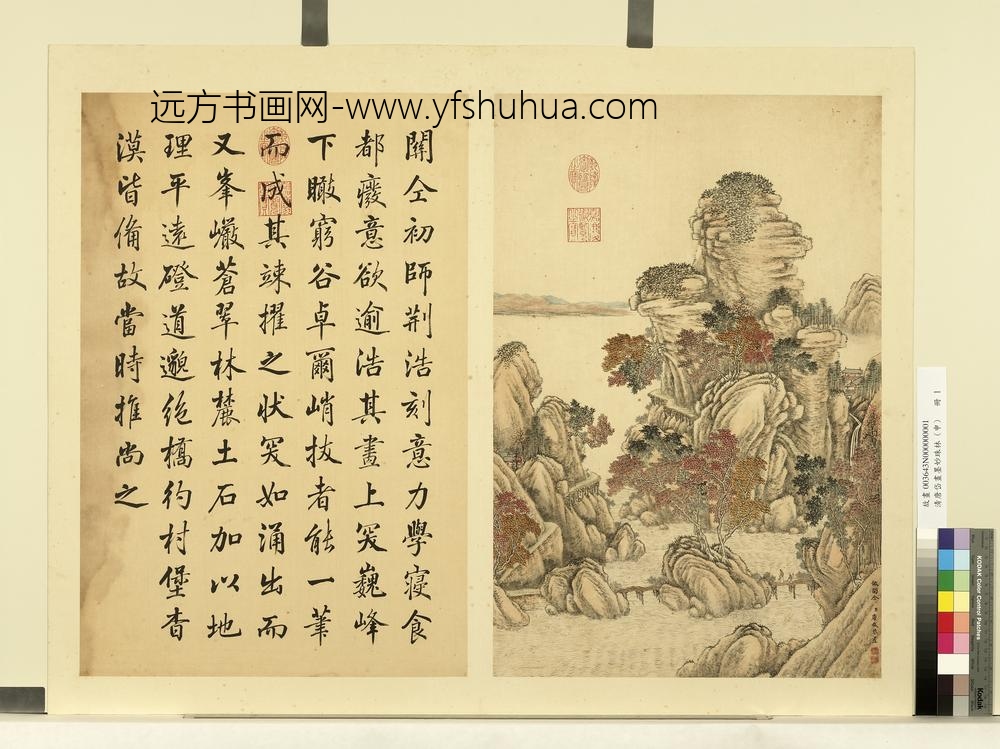 远方书画网-www.yfshuhua.com
關仝初師荆浩刻意力學寝食
都廢意欲逾浩其畫上突巍峰
下瞰窮谷卓爾峭拔者能一筆
而成其竦擢之状突如涌出而
又峯巖蒼翠林麓土石加以地
理平遠磴道邈絶橋彴村堡杳
漠皆備故當時推尚之
倣關仝
故畫 003643N000000001
清唐岱畫墨妙珠林（申） 冊 1
KODAK Color Control Patches
Kodak